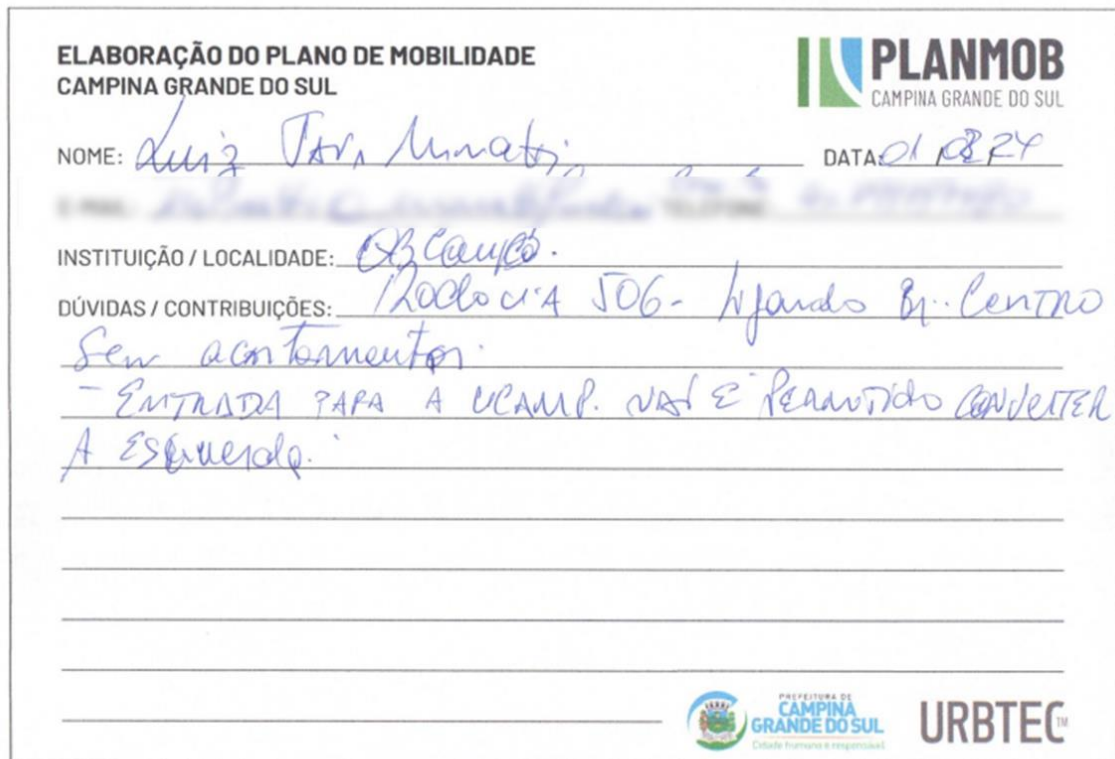 ELABORAÇÃO DO PLANO DE MOBILIDADE
CAMPINA GRANDE DO SUL
PLANMOB
CAMPINA GRANDE DO SUL
NOME: Luiz DATA: 01
INSTITUIÇÃO / LOCALIDADE:
DÚVIDAS / CONTRIBUIÇÕES: Rodovia 506 - ligando Br. Centro
Sem acostamentos.
- ENTRADA PARA A É PERMITIDO CONVERTER
A Esquerda.
PREFEITURA DE
CAMPINA
GRANDE DO SUL
Cidade humana e responsável
URBTEC™